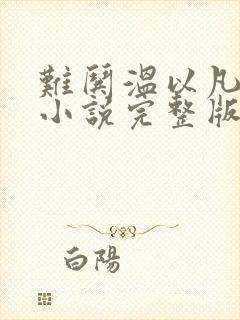 難鬨温以凡
小說完整版
白陽